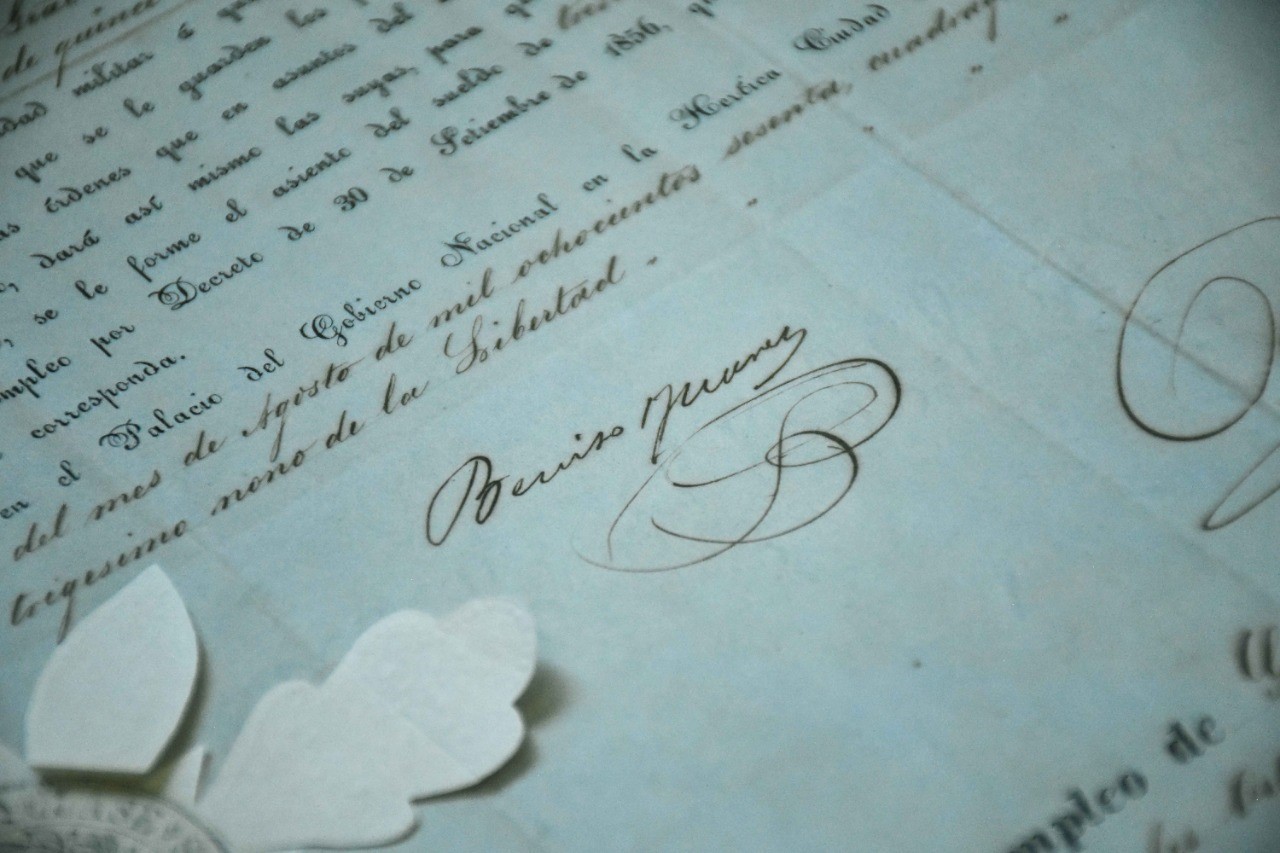 de quince
militar é
que se le guarden los
órdenes que en asuntos del
dará así mismo las suyas, para
se le forme el asiento del sueldo de
empleo por Decreto de 30 de Setiembre de 1856,
corresponda.
en el Palacio del Gobierno Nacional en la Heróica Ciudad
del mes de Agosto de mil ochocientos sesenta,
trigesimo nono de la Libertad.
Benito Juarez
de